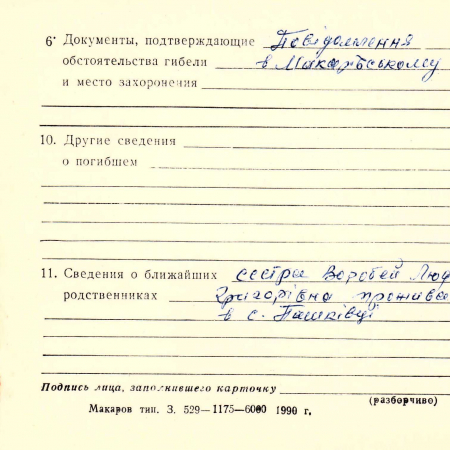 6· Документы, подтверждающие Повідомлення
обстоятельства гибели в Макарівському
и место захоронения
10. Другие сведения
о погибшем
11. Сведения о ближайших сестра Воробей Люд
родственниках Григорівна прожива
в с. Пашківці
Подпись лица, заполнившего карточку
(разборчиво)
Макаров тип. З. 529—1175—6000 1990 г.